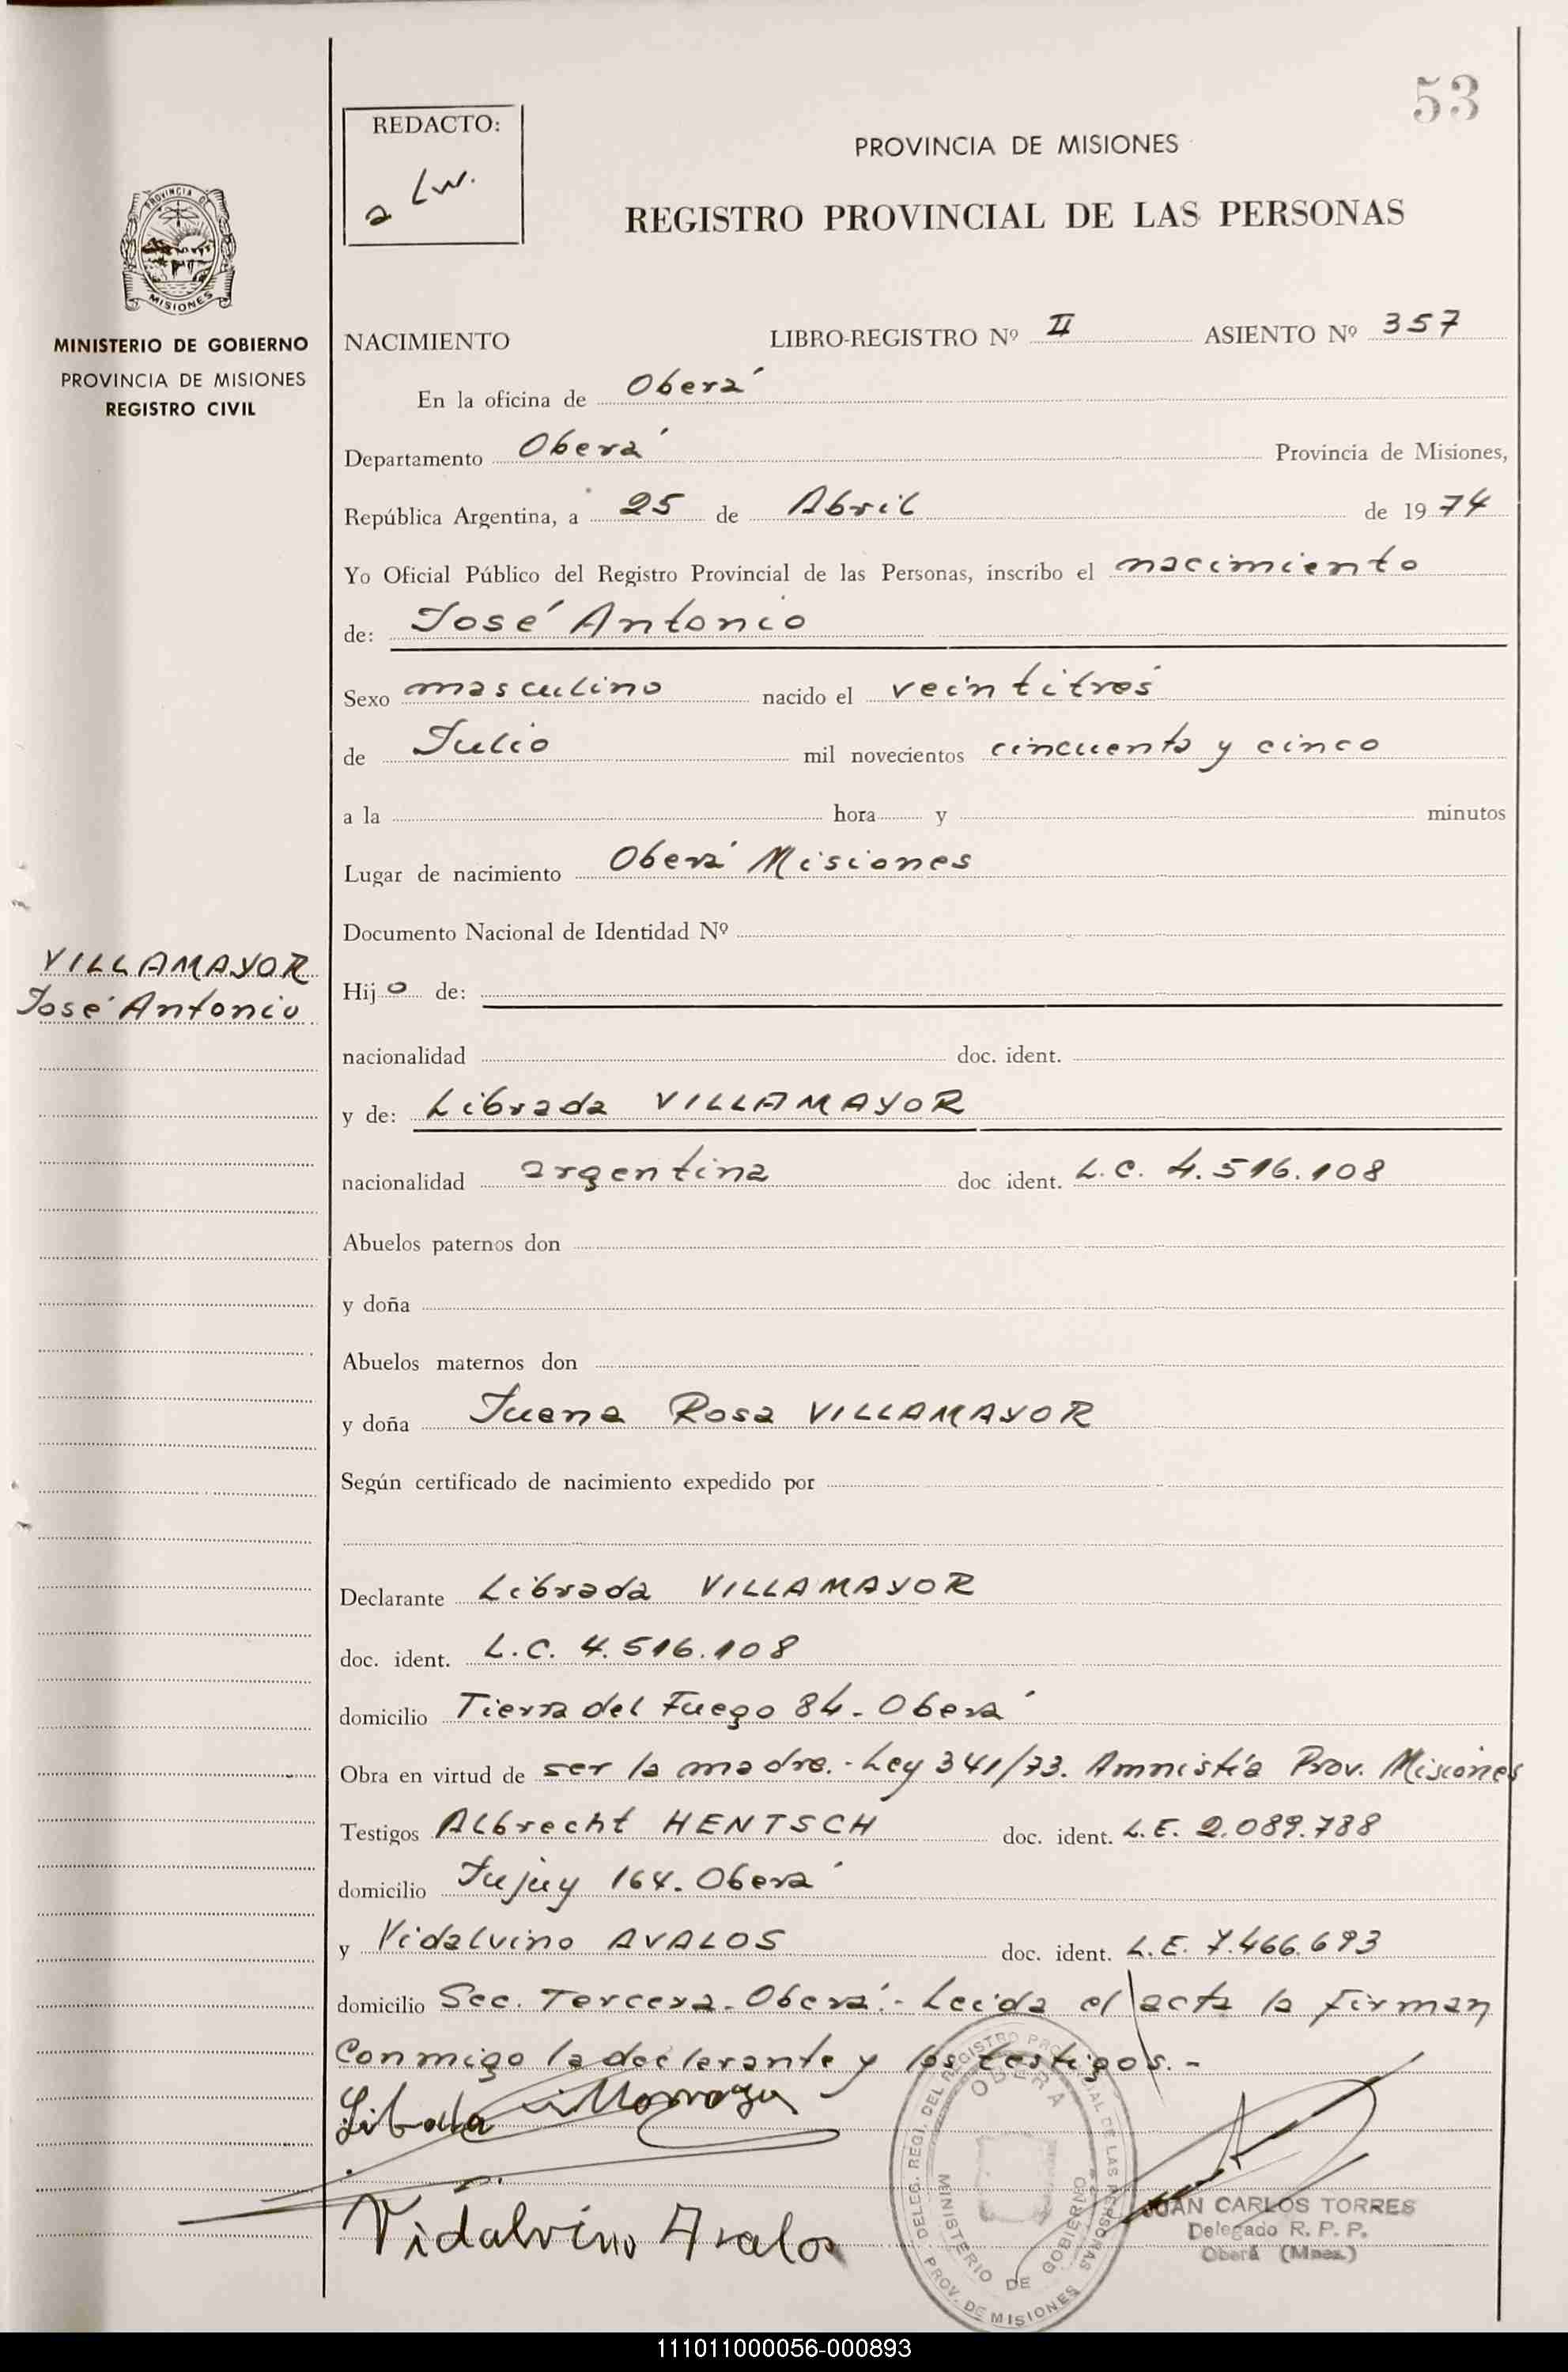 53
REDACTO:
a Lw.
PROVINCIA DE MISIONES
REGISTRO PROVINCIAL DE LAS PERSONAS
PROVINCIA DE
MISIONES
MINISTERIO DE GOBIERNO
PROVINCIA DE MISIONES
REGISTRO CIVIL
NACIMIENTO LIBRO-REGISTRO Nº II ASIENTO Nº 357
En la oficina de Oberá
Departamento Oberá Provincia de Misiones,
República Argentina, a 25 de Abril de 1974
Yo Oficial Público del Registro Provincial de las Personas, inscribo el nacimiento
de: José Antonio
Sexo masculino nacido el veintitrés
de Julio mil novecientos cincuenta y cinco
a la hora y minutos
Lugar de nacimiento Oberá Misiones
Documento Nacional de Identidad Nº
VILLAMAYOR
José Antonio
Hijo de:
nacionalidad doc. ident.
y de: Librada VILLAMAYOR
nacionalidad argentina doc ident. L.C. 4.516.108
Abuelos paternos don
y doña
Abuelos maternos don
y doña Juana Rosa VILLAMAYOR
Según certificado de nacimiento expedido por
Declarante Librada VILLAMAYOR
doc. ident. L.C. 4.516.108
domicilio Tierra del Fuego 84. Oberá
Obra en virtud de ser la madre.- Ley 341/73. Amnistía Prov. Misiones
Testigos Albrecht HENTSCH doc. ident. L.E. 2.089.788
domicilio Jujuy 164. Oberá
y Vidalvino AVALOS doc. ident. L.E. 7.466.693
domicilio Sec. Tercera. Oberá.- Leida el acta la firman
conmigo la declarante y los testigos.-
Vidalvino Avalos
DELEG. REGI. DEL REGISTRO PROVINCIAL DE LAS PERSONAS
OBERA
MINISTERIO DE GOBIERNO
PROV. DE MISIONES
JUAN CARLOS TORRES
Delegado R. P. P.
Oberá (Mnes.)
111011000056-000893